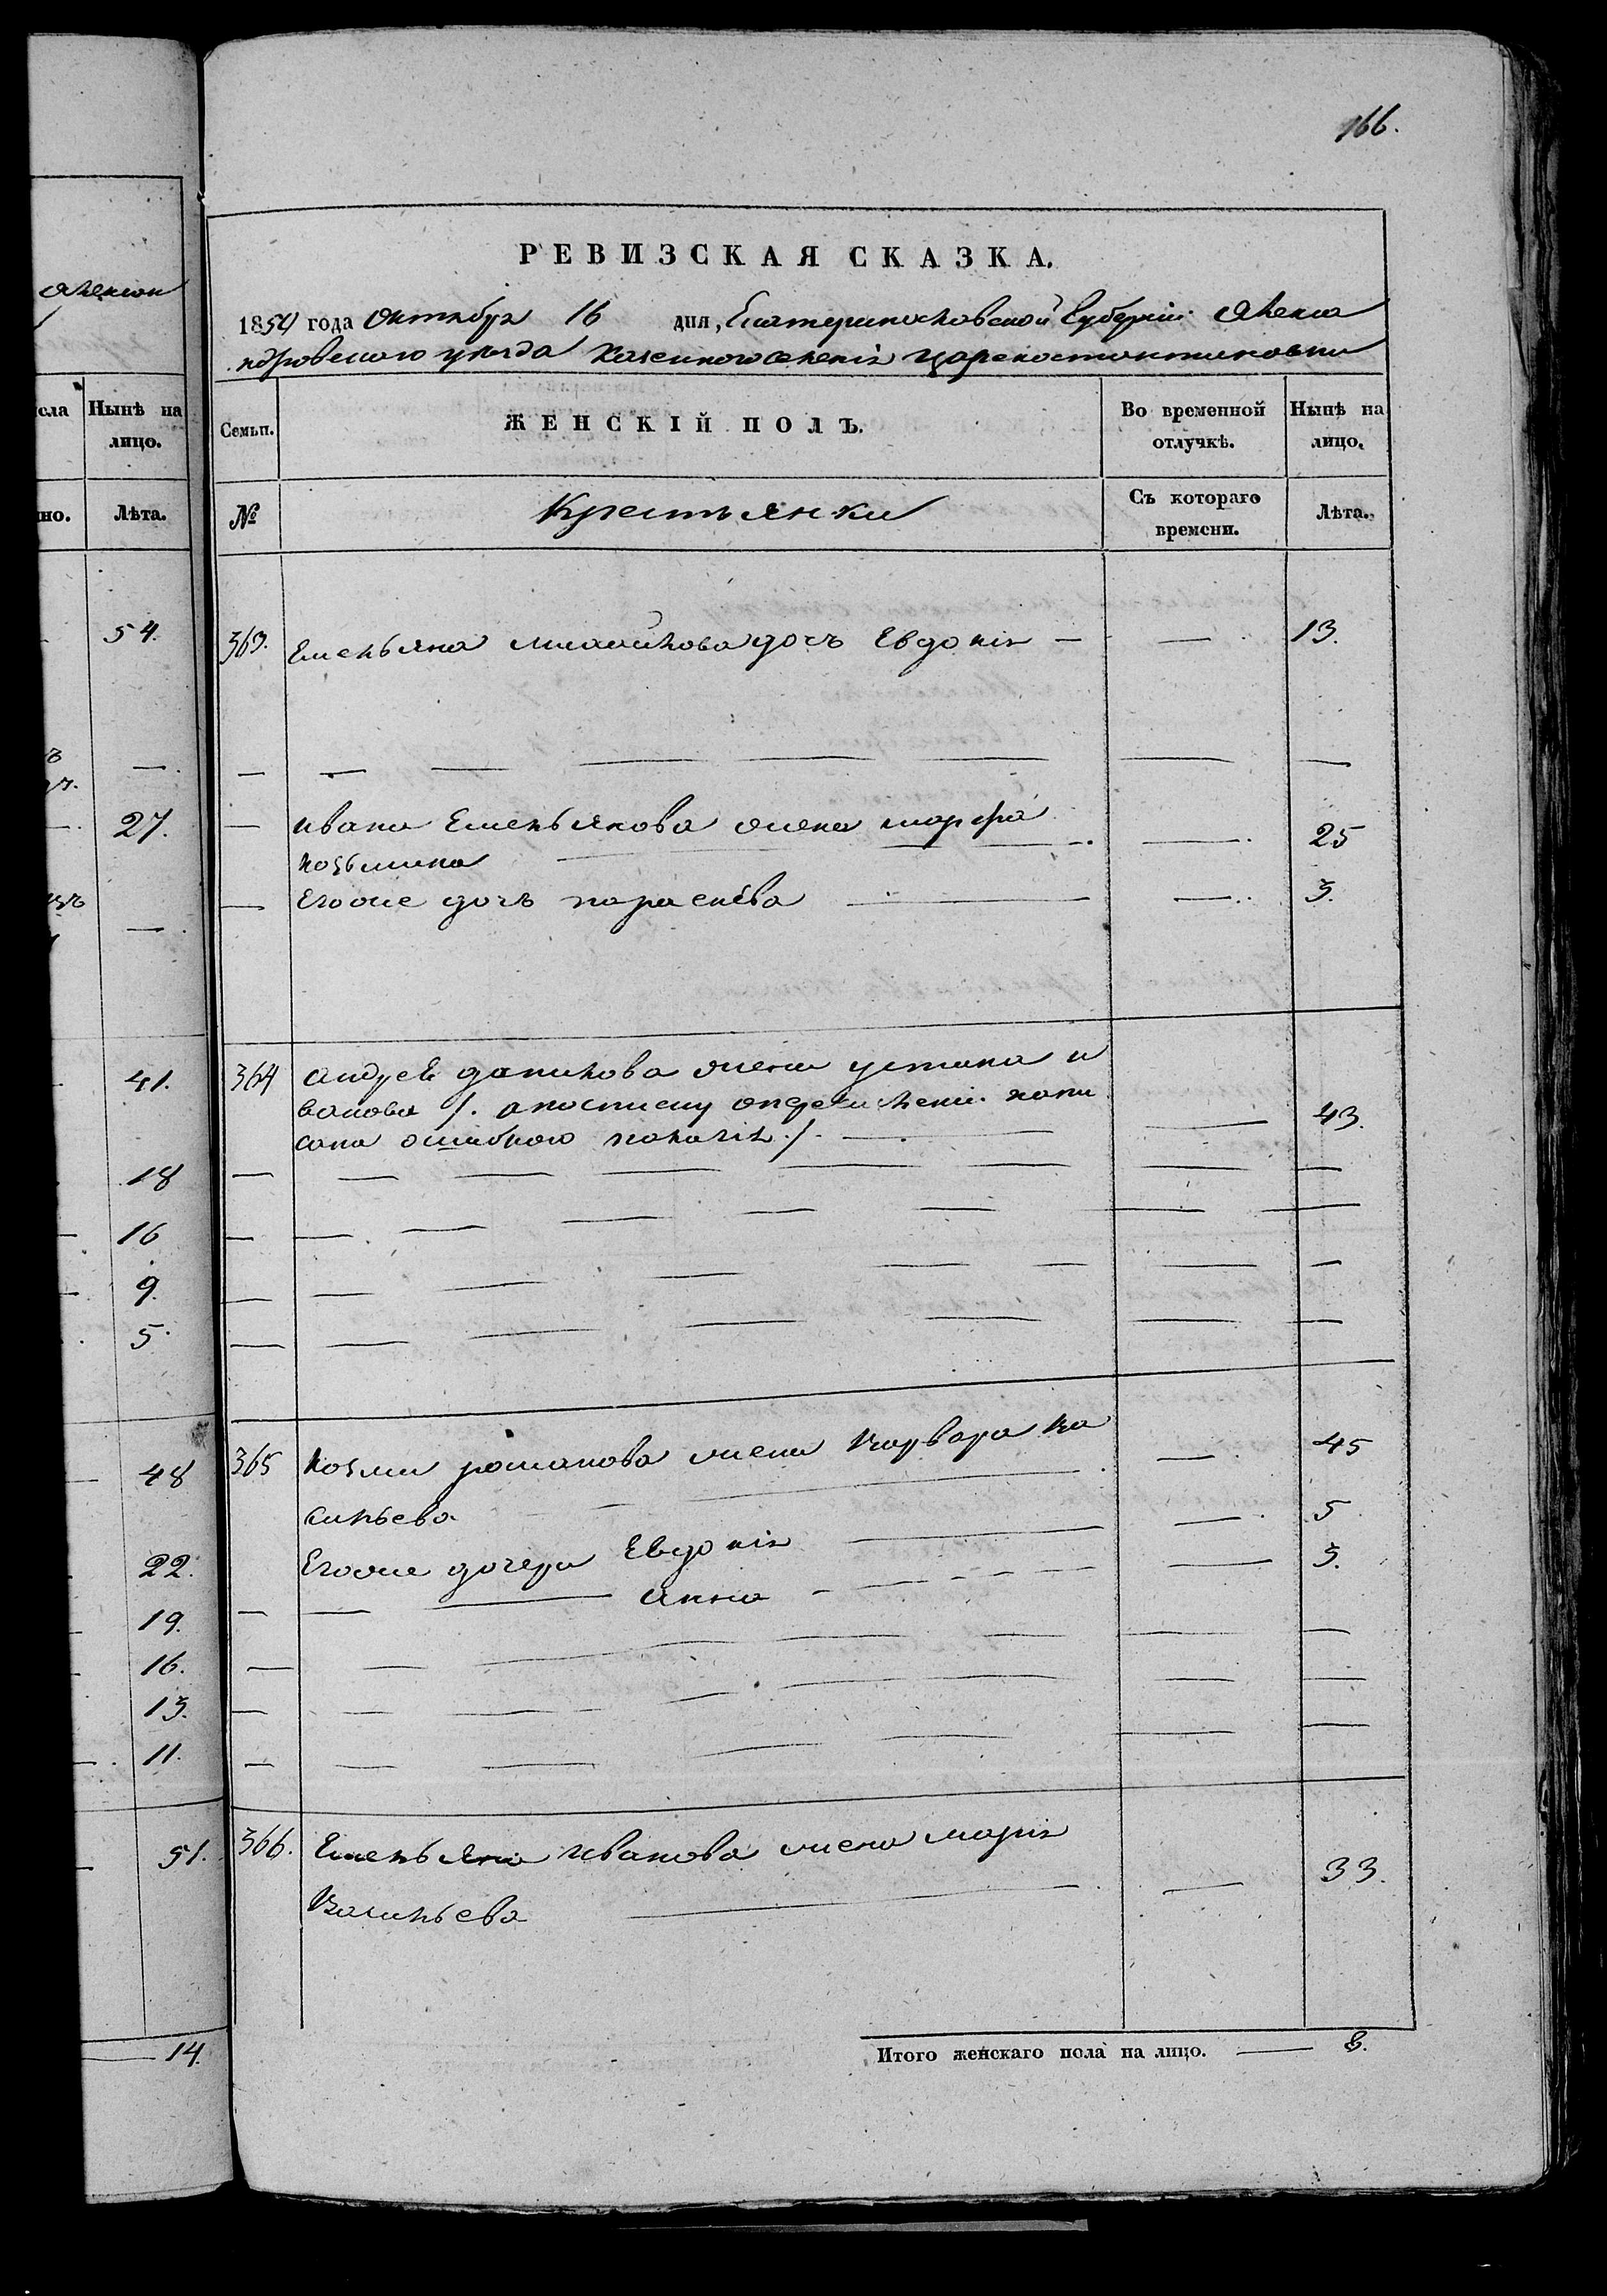 166.
Алексан
РЕВИЗСКАЯ СКАЗКА.
1854 года Октября 16 дня, Екатеринославской Губерніи Алекса
ндровского уезда казенного селенія Цареконстантиновки
сла
Нынѣ на лицо.
но.
Лѣта.
Семьи.
ЖЕНСКІЙ ПОЛЪ.
Во временной отлучкѣ.
Нынѣ на лицо.
№
Крестьянки
Съ котораго времени.
Лѣта.
54.
27.
41.
18
16
9.
5.
48
22.
19.
16.
13.
11.
51.
14.
363. Емельяна михайлова дочь Евдокія — — 13.
— — — — — — — —
— ивана Емельянова жена марфа
козьмина — — 25
— Егоже дочь параскева — — 3.
364 андрея данилова жена устина и
ванова /. а
сана ошибкою . /. — — 43.
— — — — — — — —
— — — — — — — —
— — — — — — — —
— — — — — — — —
365 козми романова жена варвара ва
сильева — — 45
Егоже дочери Евдокія — — 5
— — — анна — — 3.
— — — — — — —
— — — — — — —
— — — — — — —
366. Емельяна иванова жена марія
Васильева — — 33.
Итого женскаго пола на лицо. — 8.